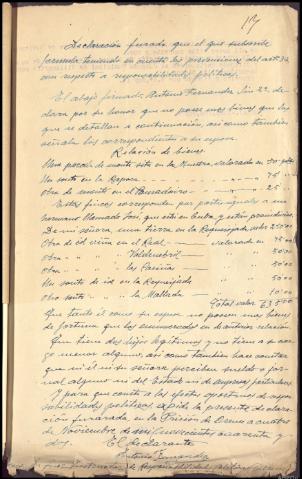 Declaración jurada que el que subscribe
formula teniendo en cuenta las prevenciones del artº
con respecto a responsabilidades políticas.
El abajo firmado Antonio Fernandez de-
clara por su honor que no posee mas bienes que los
que se detallan a continuación, así como también
señala los correspondientes a su esposa.
Relación de bienes
Una parcela de monte sita en la valorada en 50'00
Un souto en la Raposa 75 "
otra de monte en el 25 "
Estas fincas corresponden por partes iguales a un
hermano llamado José, que está en Cuba y están proindiviso.
De mi señora una tierra en la Requeixada valor 250'00
Otra de id en el Real valorada en 75'00
otra " " " 50'00
otra " " las 50'00
Un souto de id en la Requeixada 50'00
otro souto " " la Mallada 10'00
Total valor 635'00
Que tanto él como su esposa no poseen mas bienes
de fortuna que los enumerados en la anterior relación.
Que tiene dos hijos legítimos y no tiene a su car-
go menor alguno, así como también hace constar
que ni él ni su señora perciben sueldo o jor-
nal alguno ni del Estado ni de empresas particulares.
Y para que conste a los efectos oportunos de respon-
sabilidades políticas expide la presente declara-
ción jurada en la Prisión de Orense a cuatro
de Noviembre de mil novecientos cuarenta y
dos. El declarante
Antonio Fernandez